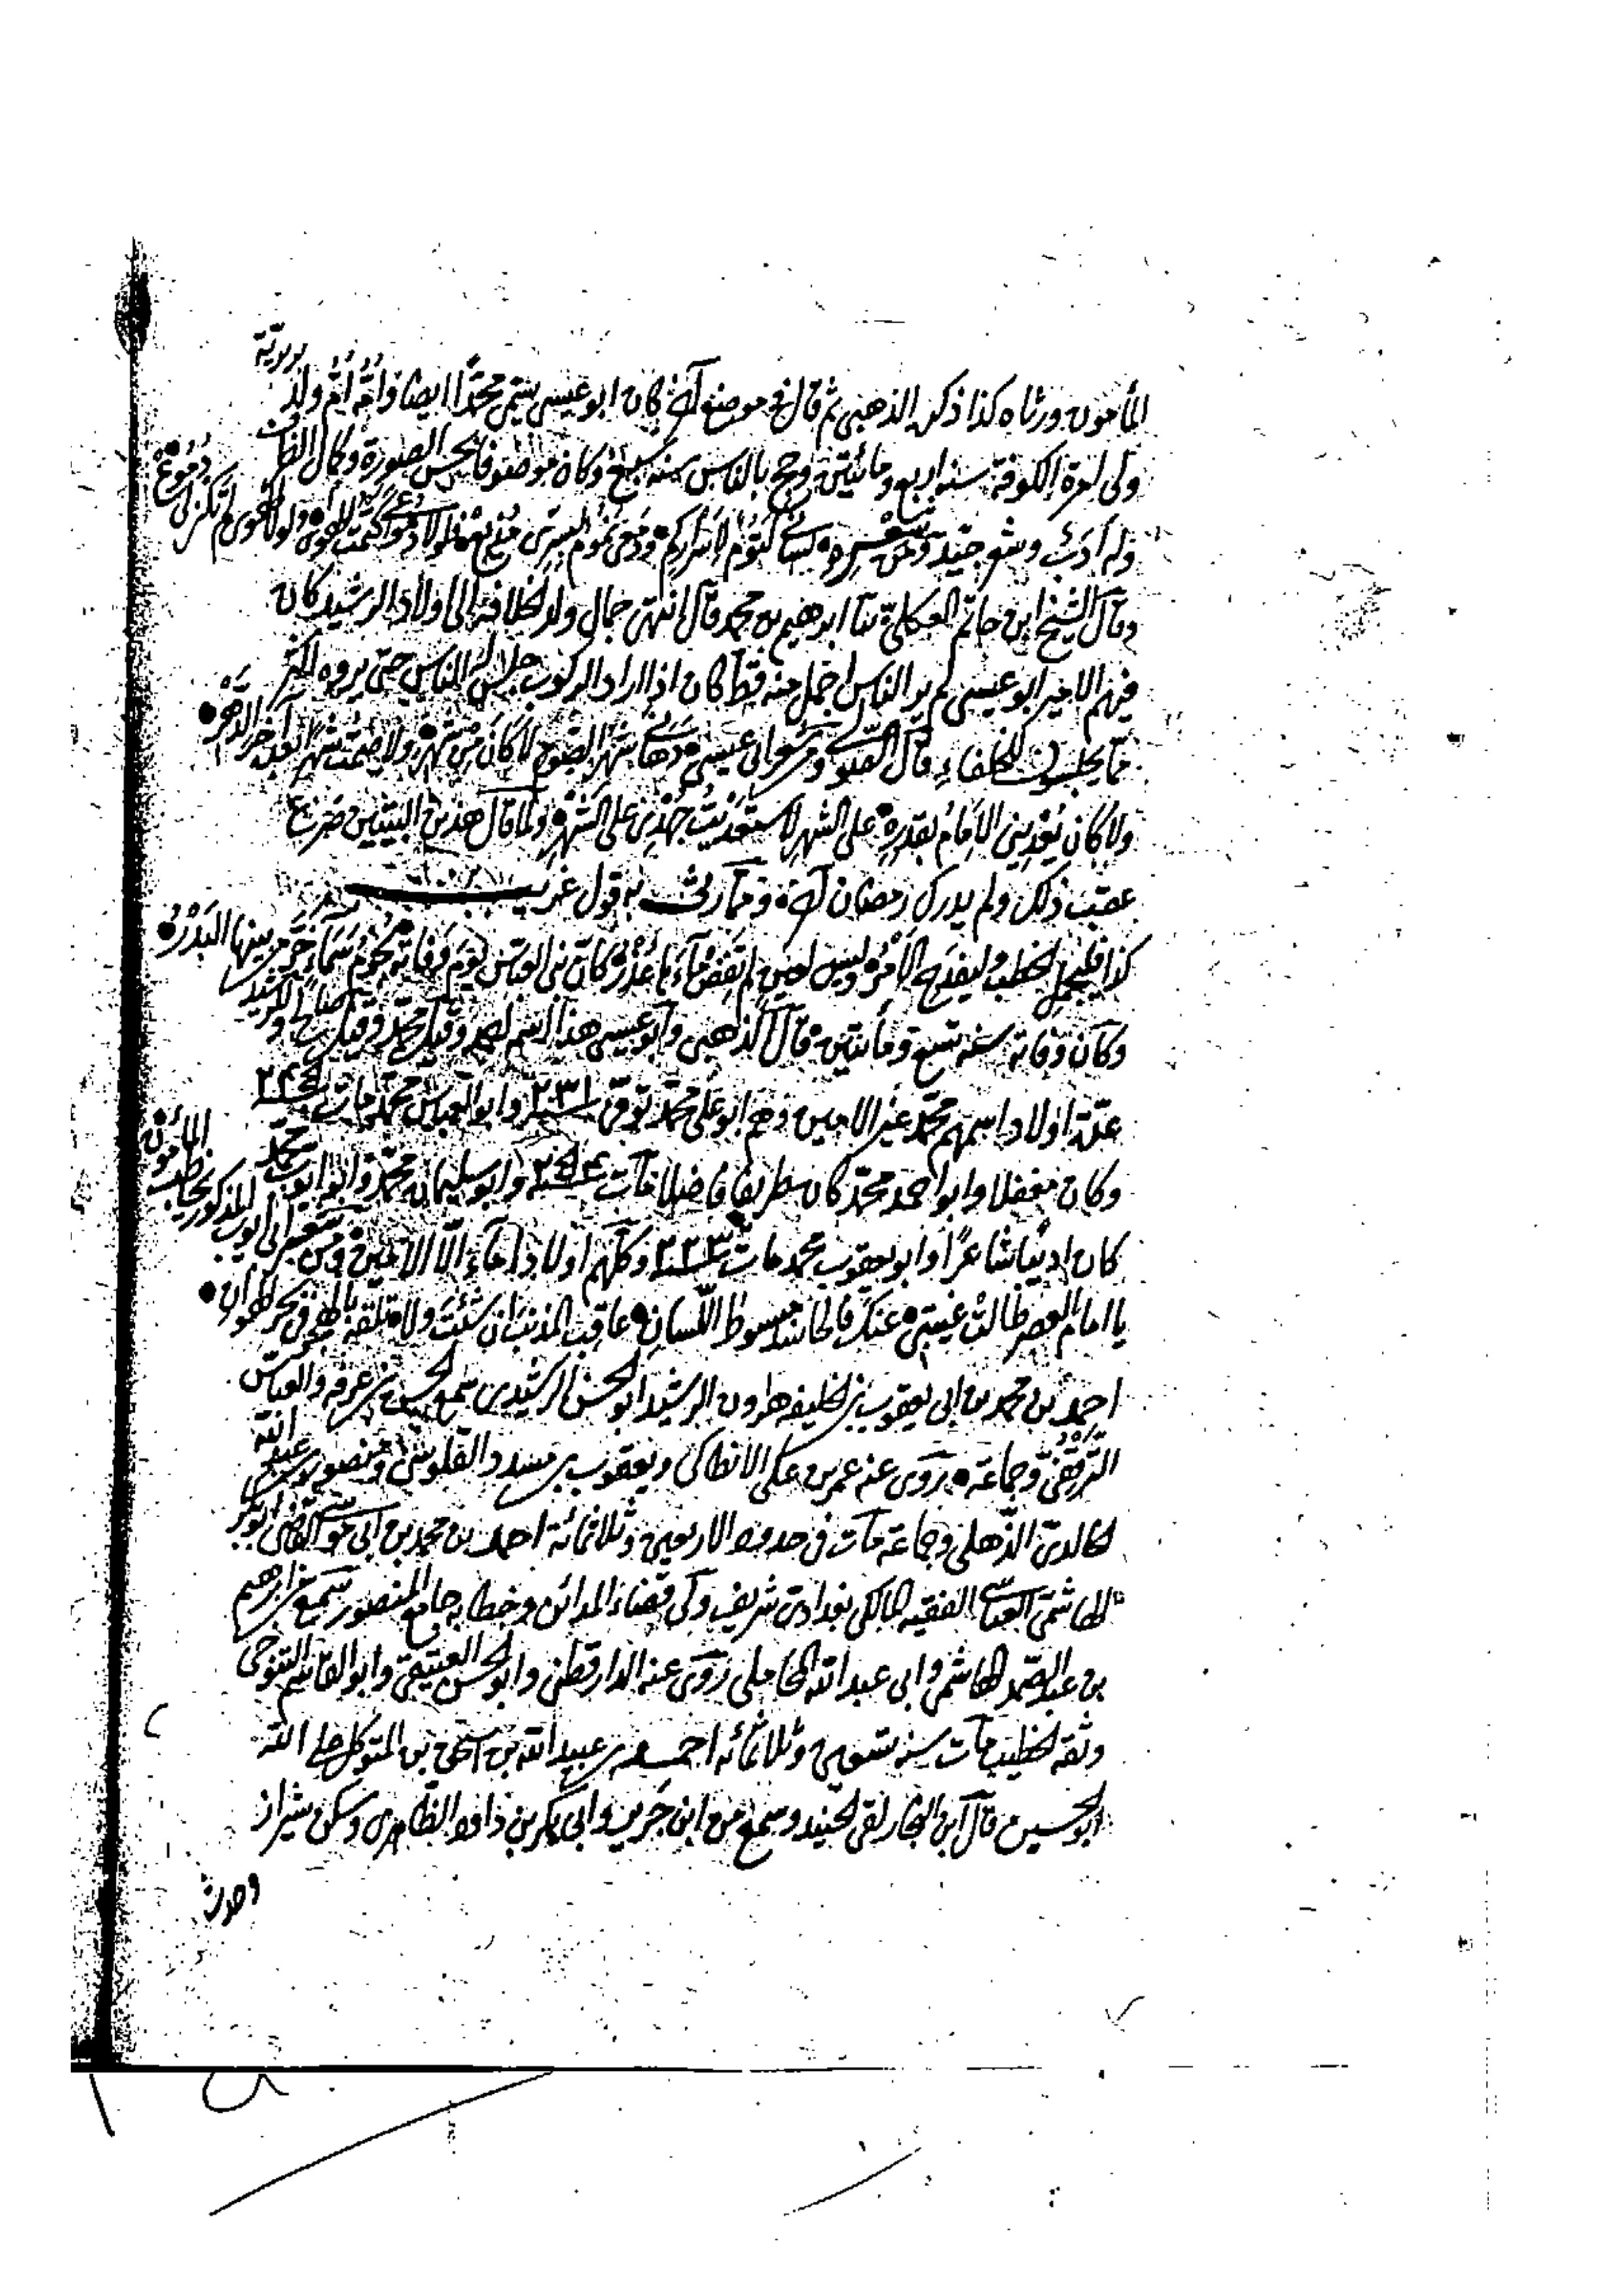 المأمون ورثاه كذا ذكره الذهبي ثم قال في موضع آخر كان ابو عيسى يسمى محمدًا ايضا وَأمّه أمّ ولد بربرية
ولى امرة الكوفة سنه اربع ومائتين وحج بالناس سنه سبع وكان موصوفا بحسن الصورة وكمال الظرف
وله ادَبٌ وشعر جيّد ومن شعره لساني كتومٌ لاسراركم ودمعي نموم بسِرّى مُذيع فلولا دموعي كتمت الهوى ولولا الهوى لم تكن لى دموع
وقال الشيخ ابن حاتم العكلى ثنا ابراهيم بن محمد قال انتهى جمال ولد الخلافه الى اولاد الرشيد كان
فيهم الامير ابو عيسى لم ير الناس اجمل منه قط كان اذا اراد الركوب جلس له الناس حتى يروه اكثر
مما يجلسون للخلفاء قال الصولي ومن شعر ابى عيسى دهاني شهر الصّوم لا كان من شهر ولا صمت شهرًا بعده آخر الدّهر
ولو كان يُعْديني الامامُ بقدرة على الشهر لاستعديتُ جُهدي على الشهر ولما قال هذين البيتين صُرع
عقب ذلك ولم يدرك رمضان آخر ومما رثى به قول غريب
كذا فليجلِ الخطب وليفدح الأمْر وليس لعين لم يَفض مآءَها عُذر كان بنى العباس يوم وَفاتِه نجومُ سَمآءٍ خرّ من بينها البَدْر
وكان وفاته سنه تسع ومأيتين قال الذهبي وابو عيسى هذا اسمه احمد وقيل محمد وقيل صالح وللرشيد
عدّة اولاد اسمهم محمد غير الامين وهم ابو على محمد توفى ٢٣١ وابو العباس محمد مات ٢٤٥
وكان مغفلا وابو احمد محمد كان ظريفا فاضلا مات ٢٥٤ وابو سليمان محمد وابو ايوب محمد
كان اديبًا شاعرًا وابو يعقوب محمد مات ٢٢٣ وكلّهم اولاد امآء الّا الامين ومن شعر ابى ايوب المذكور يخاطب المأمون
يا امام العصر طالت غيبتي عنك فالحاسد مبسوط اللّسان عاقب المذنب ان شئت ولا تلقه بالهجر في بحر الهوان
احمد بن محمد بن ابى يعقوب بن الخليفه هارون الرشيد ابو الحسن الرشيدى سمع الحسن بن عرفه والعباس
الترقفيّ وجماعة روى عنه عمر بن على الانطاكى ويعقوب بن مسدد القلوسى ومنصور بن عبد الله
الخالدى الذهلى وجماعة مات في حدود الاربعين وثلاثمائة احمد بن محمد بن ابى موسى القاضى ابو بكر
الهاشمى العباسي الفقيه المالكى بغدادى شريف ولى قضاء المدائن وخطابه جامع المنصور سمع من ابراهيم
بن عبد الصمد الهاشمى وابى عبد الله المحاملى روى عنه الدارقطنى وابو الحسن العتيقى وابو القاسم التنوخى
وثقه الخطيب مات سنه تسعين وثلاثمائه احمد بن عبيد الله بن اسحق بن المتوكل على الله
ابو الحسين قال ابن النجار لقى الجنيد وسمع من ابن جرير وابى بكر بن داود الظاهرى وسكن شيراز
وحدث